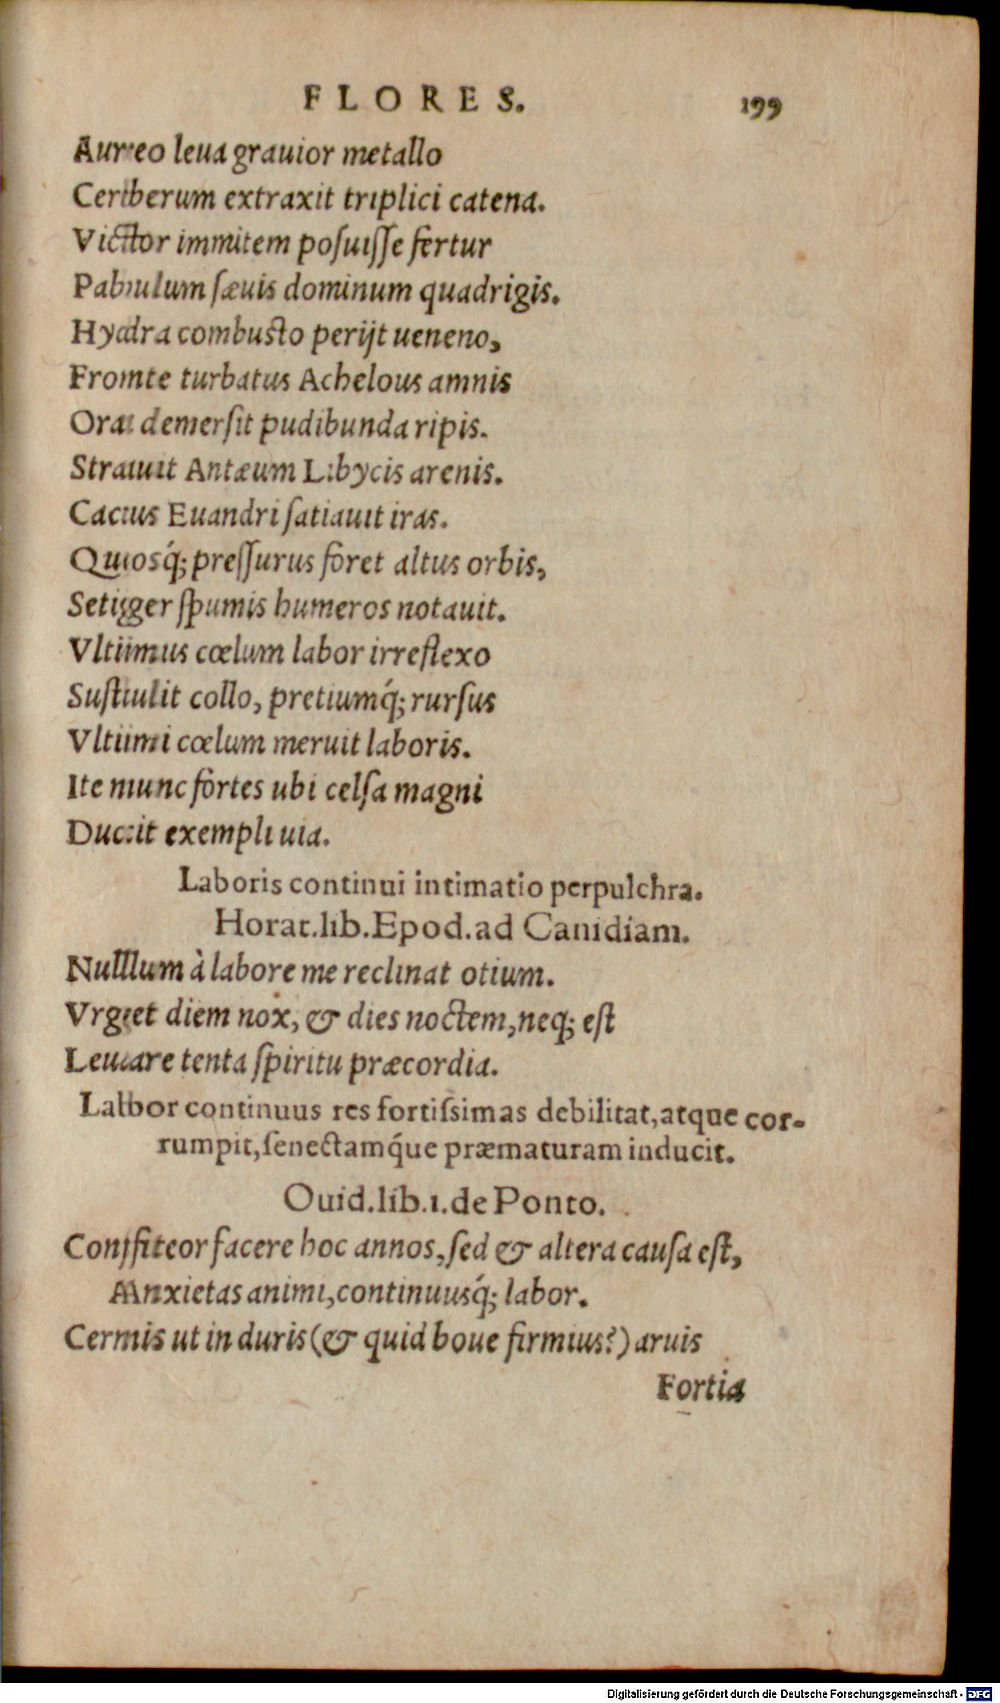 FLORES. 199
Aureo leua grauior metallo
Cerberum extraxit triplici catena.
Victor immitem posuisse fertur
Pabulum sæuis dominum quadrigis.
Hydra combusto perijt ueneno,
Fronte turbatus Achelous amnis
Ora demersit pudibunda ripis.
Strauit Antæum Libycis arenis.
Cacus Euandri satiauit iras.
Quosq́; pressurus foret altus orbis,
Setiger spumis humeros notauit.
Vltimus cœlum labor irreflexo
Sustulit collo, pretiumq́; rursus
Vltimi cœlum meruit laboris.
Ite nunc fortes ubi celsa magni
Ducit exempli uia.
Laboris continui intimatio perpulchra.
Horat.lib.Epod.ad Canidiam.
Nullum à labore me reclinat otium.
Vrget diem nox, & dies noctem, neq; est
Leuare tenta spiritu præcordia.
Labor continuus res fortissimas debilitat, atque cor-
rumpit, senectamq́ue præmaturam inducit.
Ouid.lib.1.de Ponto.
Confiteor facere hoc annos, sed & altera causa est,
Anxietas animi, continuusq́; labor.
Cernis ut in duris (& quid boue firmius?) aruis
Fortia
Digitalisierung gefördert durch die Deutsche Forschungsgemeinschaft - DFG